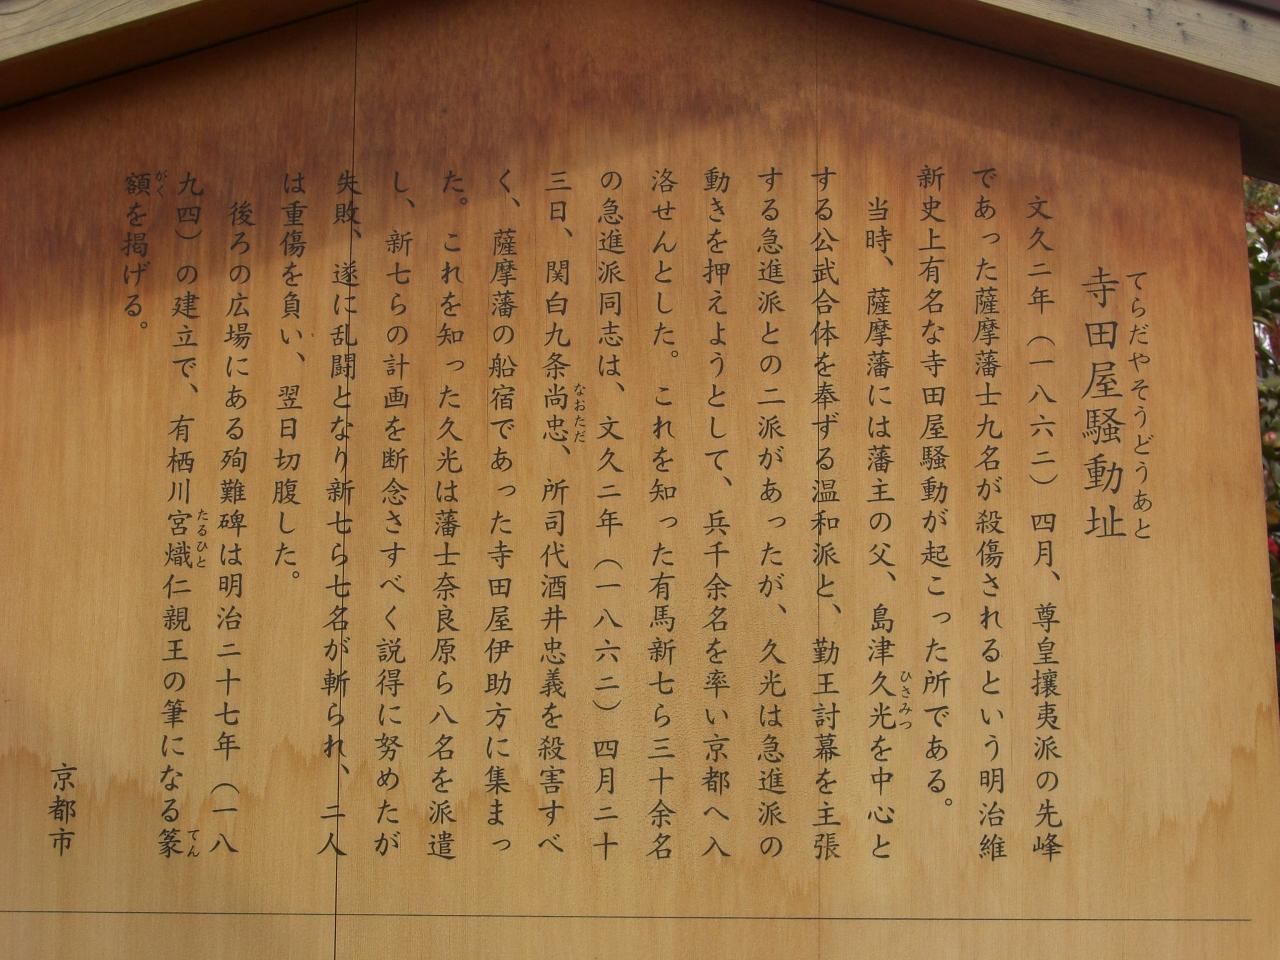 寺田屋騒動址
てらだやそうどうあと
文久二年（一八六二）四月、尊皇攘夷派の先峰
であった薩摩藩士九名が殺傷されるという明治維
新史上有名な寺田屋騒動が起こった所である。
当時、薩摩藩には藩主の父、島津久光を中心と
ひさみつ
する公武合体を奉ずる温和派と、勤王討幕を主張
する急進派との二派があったが、久光は急進派の
動きを押えようとして、兵千余名を率い京都へ入
洛せんとした。これを知った有馬新七ら三十余名
の急進派同志は、文久二年（一八六二）四月二十
三日、関白九条尚忠、所司代酒井忠義を殺害すべ
なおただ
く、薩摩藩の船宿であった寺田屋伊助方に集まっ
た。これを知った久光は藩士奈良原ら八名を派遣
し、新七らの計画を断念さすべく説得に努めたが
失敗、遂に乱闘となり新七ら七名が斬られ、二人
は重傷を負い、翌日切腹した。
後ろの広場にある殉難碑は明治二十七年（一八
九四）の建立で、有栖川宮熾仁親王の筆になる篆
たるひと
てん
額を掲げる。
がく
京都市